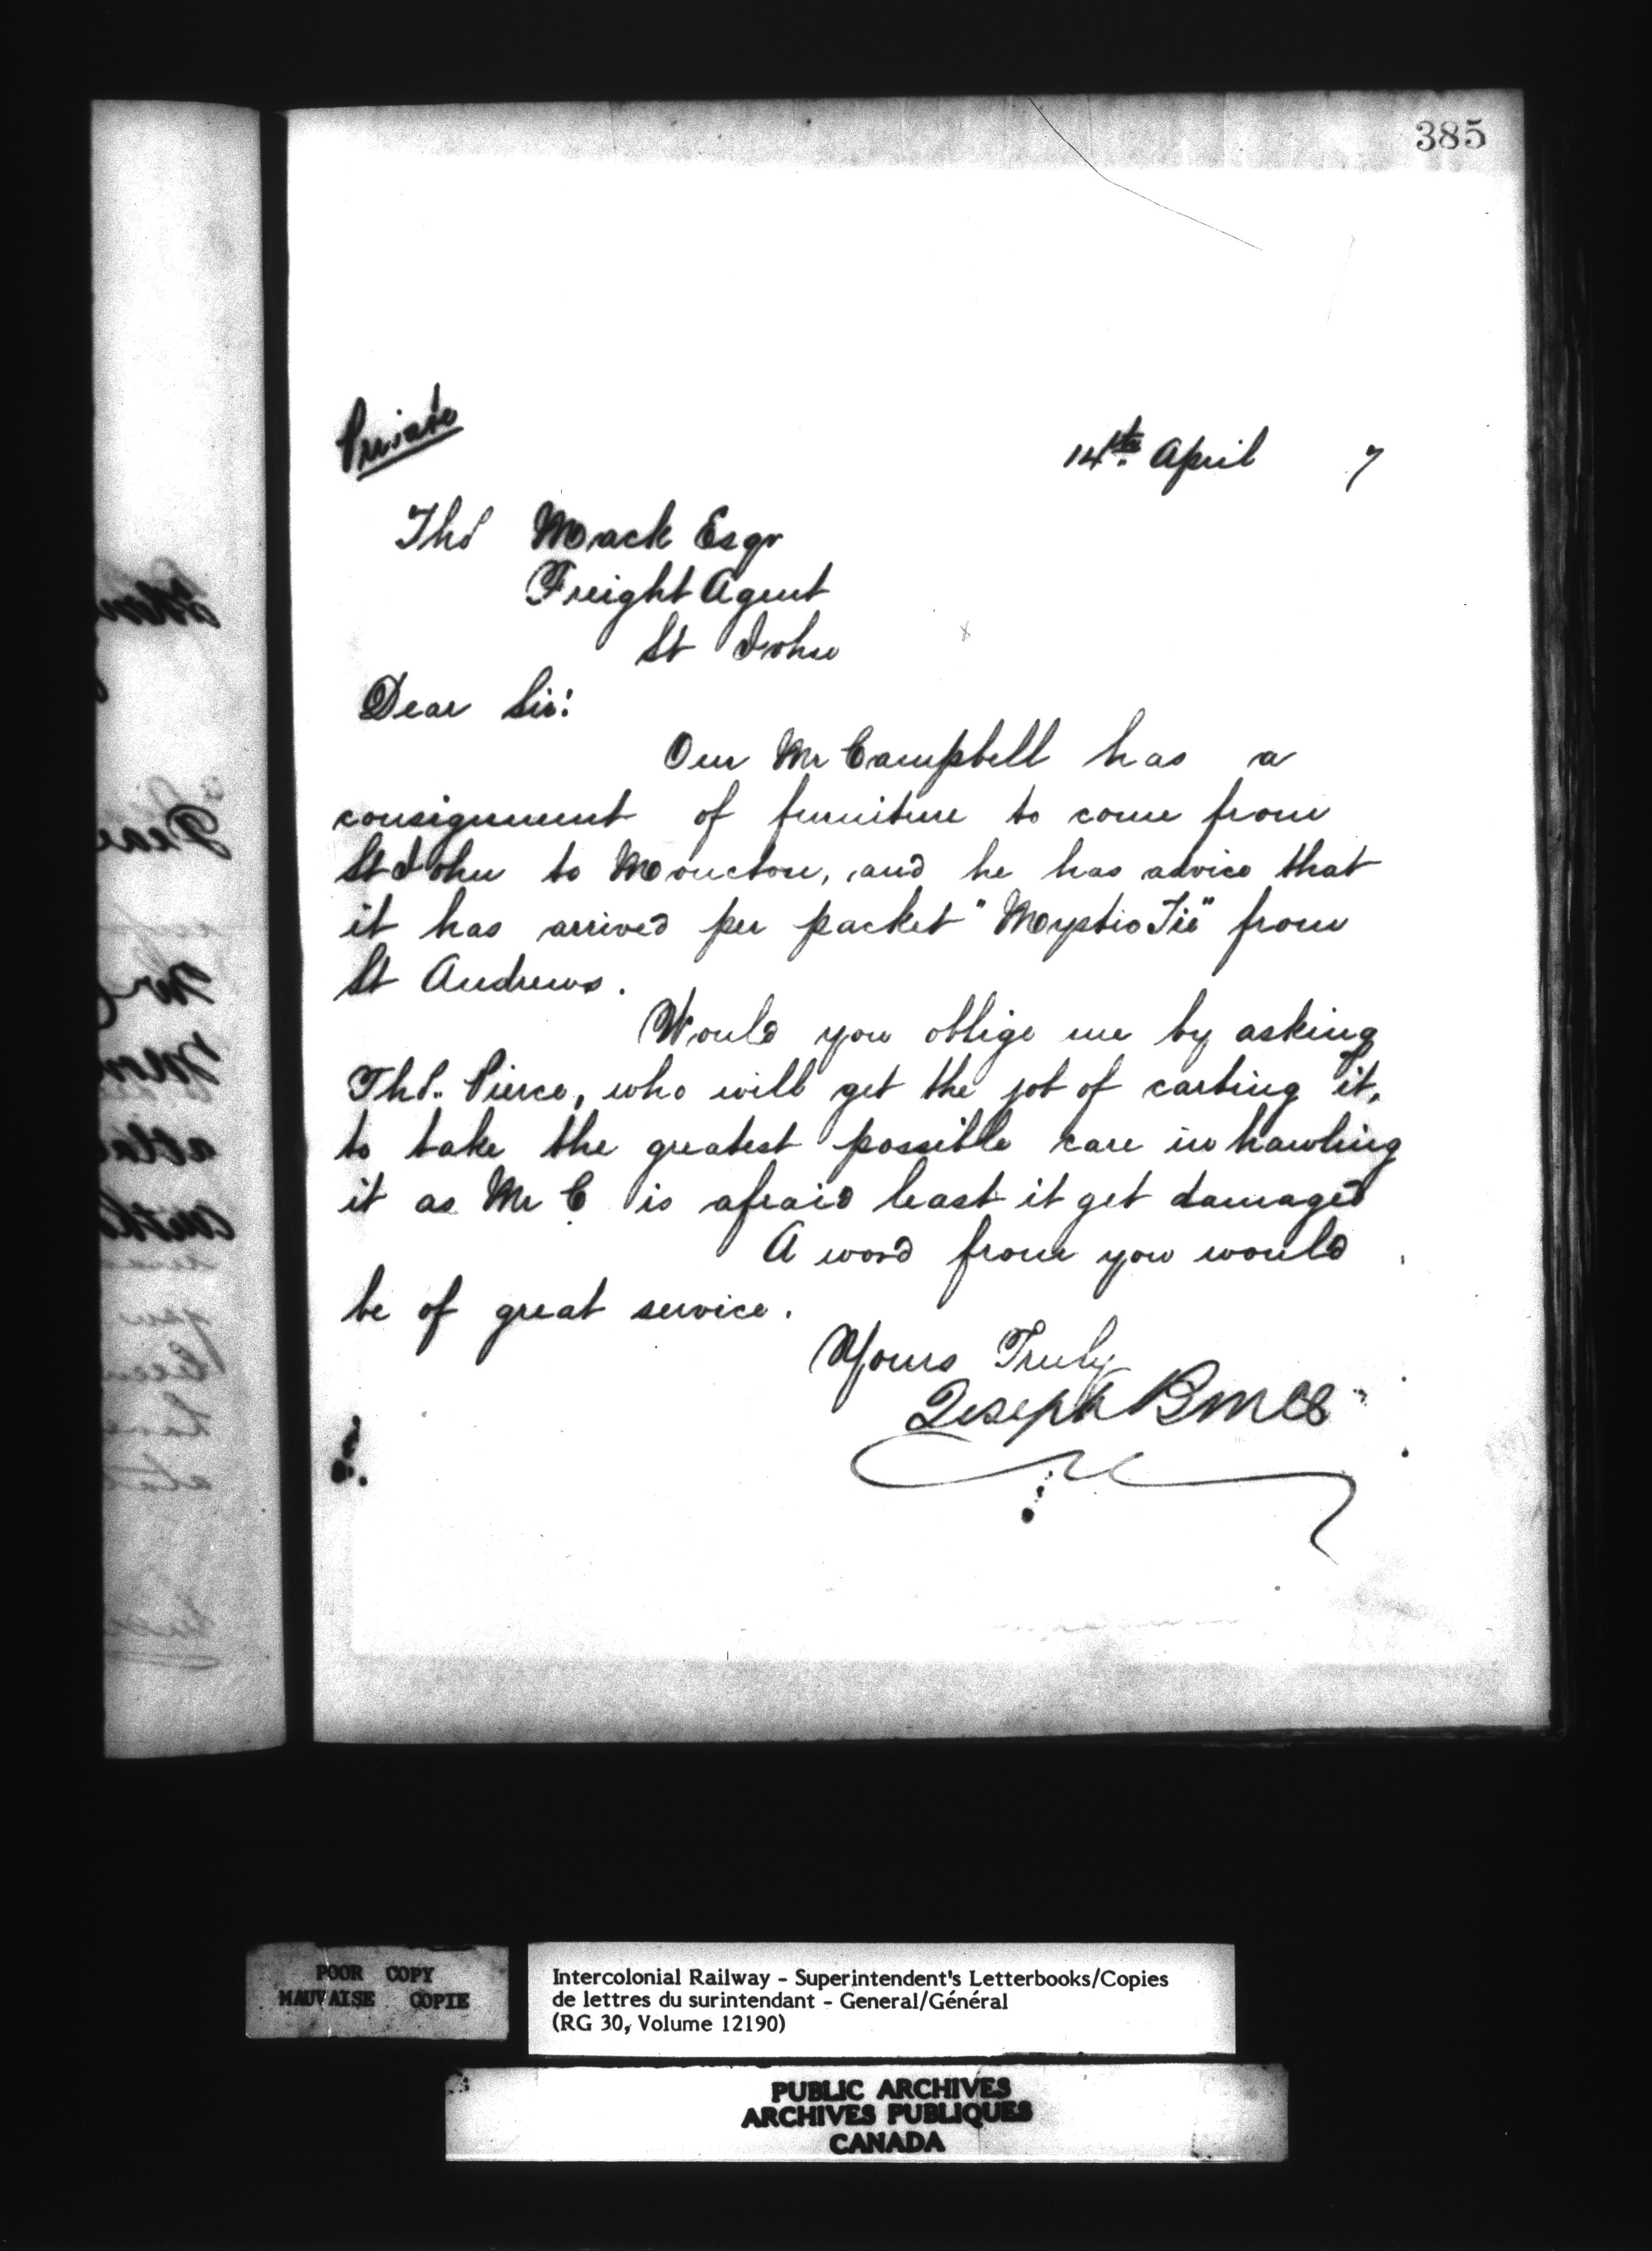 385
Private
14th. April 7
Thos Mack Esqr
Freight Agent
St John
Dear Sir:
Our Mr Campbell has a
consignment of furniture to come from
St John to Moncton, and he has advice that
it has arrived per packet "Mystic Tie" from
St Andrews.
Would you oblige me by asking
Thos. Pierce, who will get the job of carting it,
to take the greatest possible care in hawling
it as Mr C is afraid least it get damaged
A word from you would
be of great service.
Yours Truly
Joseph
POOR COPY
MAUVAISE COPIE
Intercolonial Railway - Superintendent's Letterbooks/Copies
de lettres du surintendant - General/Général
(RG 30, Volume 12190)
PUBLIC ARCHIVES
ARCHIVES PUBLIQUES
CANADA